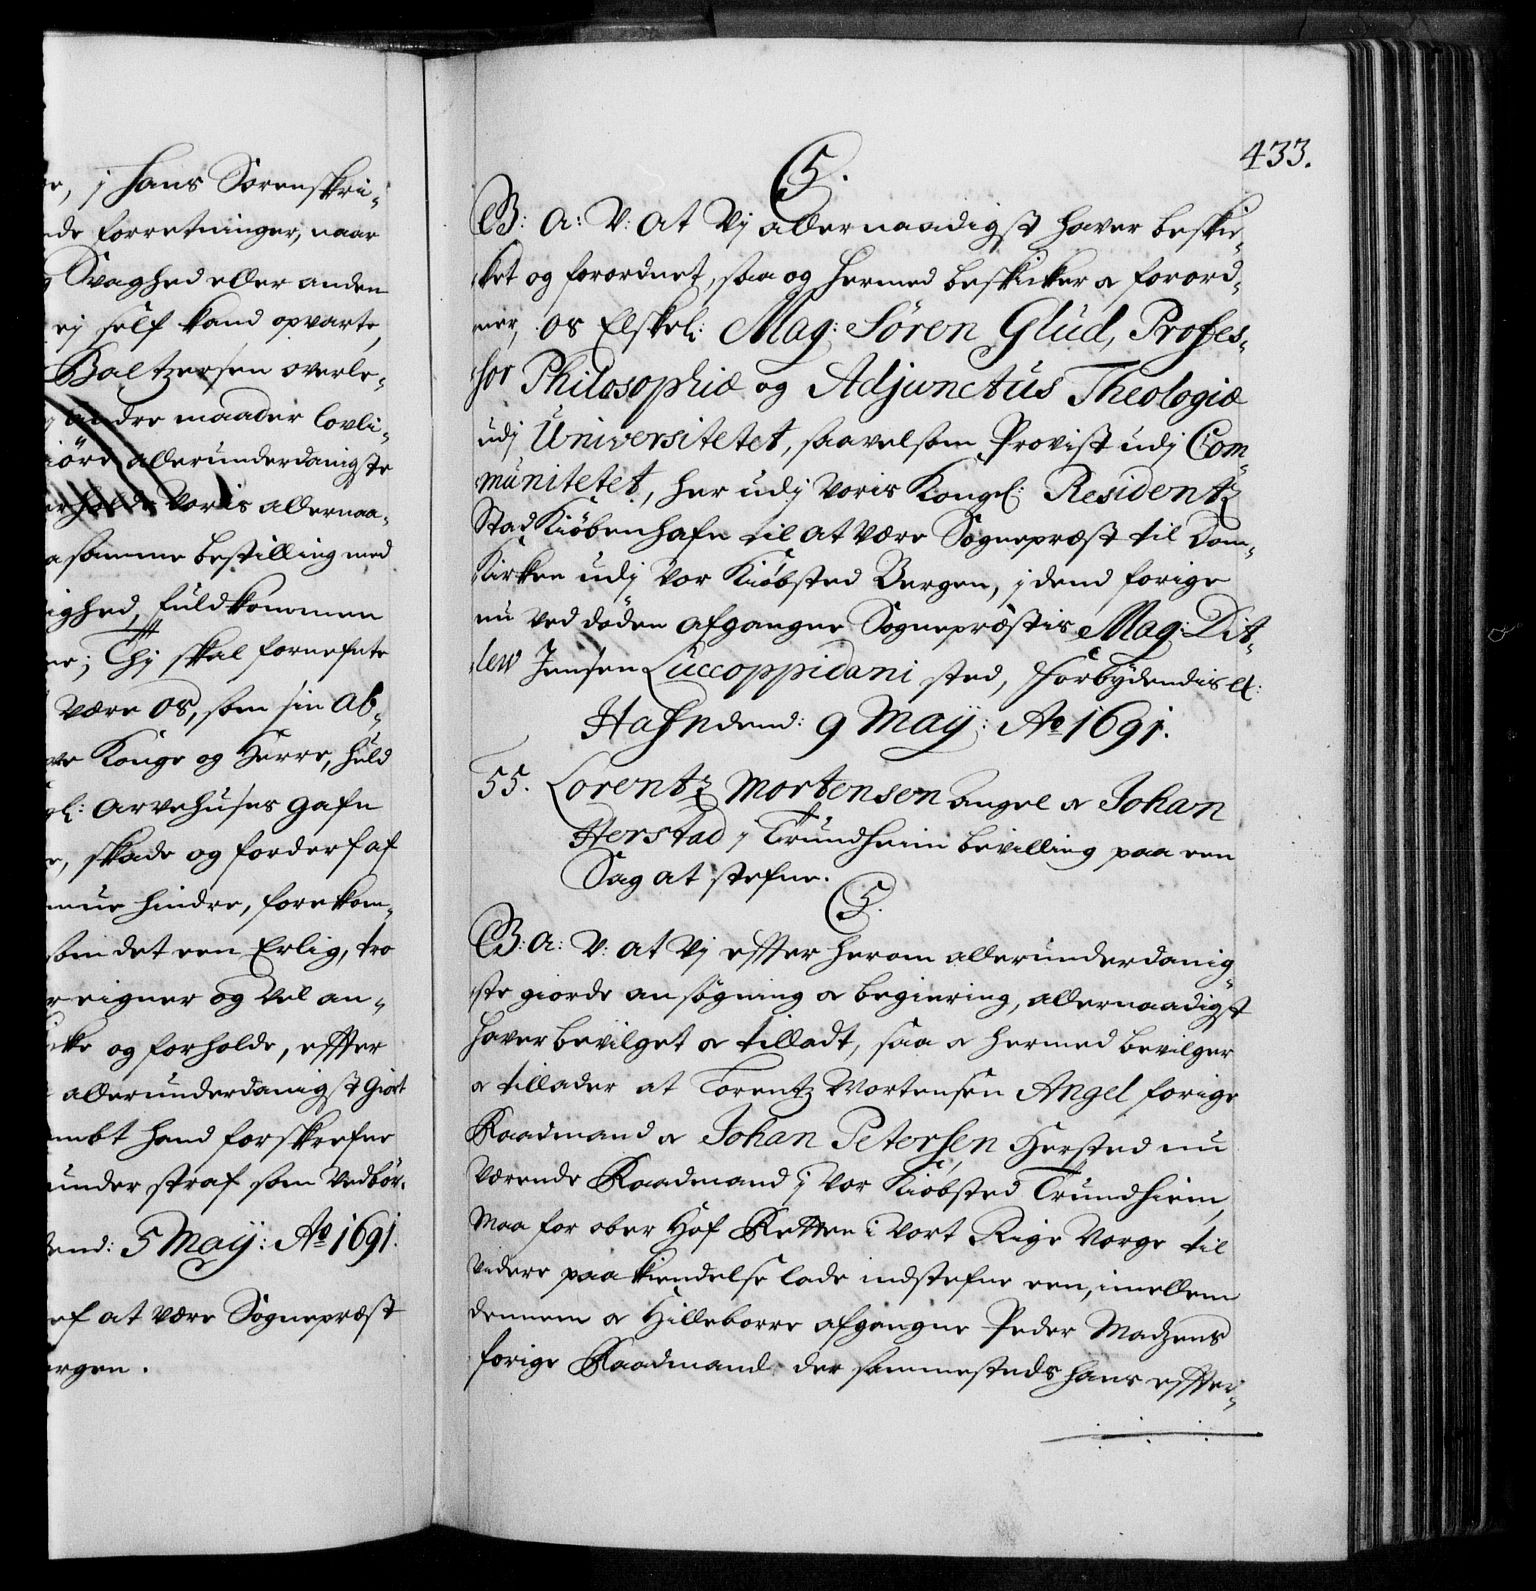 er, j hans Sorenskri-
nde forretninger, naar
g Svaghed eller anden
ej self kand opvarte,
Baltzersen overle-
g andre maader lovli-
giöre allerunderdanigste
erholde Voris allernaa-
a samme bestilling med
ighed, fuldkommen
ne; Thj skal fornefnte
være os, som sin Ab-
ove Konge og Herre, huld
gl: Arvehuses gafn
e, skade og forderf af
mue hindre, forekom-
som det een Erlig, tro
r eigner og Vel an-
icke og forholde, effter
allerunderdanigst giort
embt hand forskrefne
under straf som Vedbör.
dend: 5 Maij: Ao 1691.
ef at være Sognepræst
ergen.
433.
C5.
G: A: V: at Vj allernaadigst hafver beski-
ket og forordnet, saa og hermed beskicker & forord-
ner, os Elskel: Mag: Sören Glud, Profes-
sor Philosophiæ og Adjunctus Theologiæ
udj Universitetet, saavelsom Provist udj Com-
munitetet, her udj Voris Kongel: Residentz
Stad Kiöbenhafn til at være Sognepræst til Dom-
Kirken udj Vor Kiöbsted Bergen, j dend forige
nu ved döden afgangne Sognepræstis Mag: Dit-
lew Jensen Luccoppidani sted, Forbydendis &:
Hafn dend: 9 Maij: Ao 1691.
55. Lorentz Mortensen Angel & Johan
Herstad j Trundheim bevilling paa een
Sag at stefne.
C5.
G: A: V: at Vj effter herom allerunderdanig-
ste giorde ansögning & begiering, allernaadigst
hafver bevilget & tilladt, saa & hermed bevilger
& tillader at Lorentz Mortensen Angel forige
Raadmand & Johan Petersen Hersted nu
værende Raadmand j Vor Kiöbsted Trundhiem,
Maa for ober Hof Retten i Vort Rige Norge til
videre paakiendelse lade indstefne een, imellem
dennem & Hilleborre afgangne Peder Madzens
forige Raadmand der sammesteds hans effter-